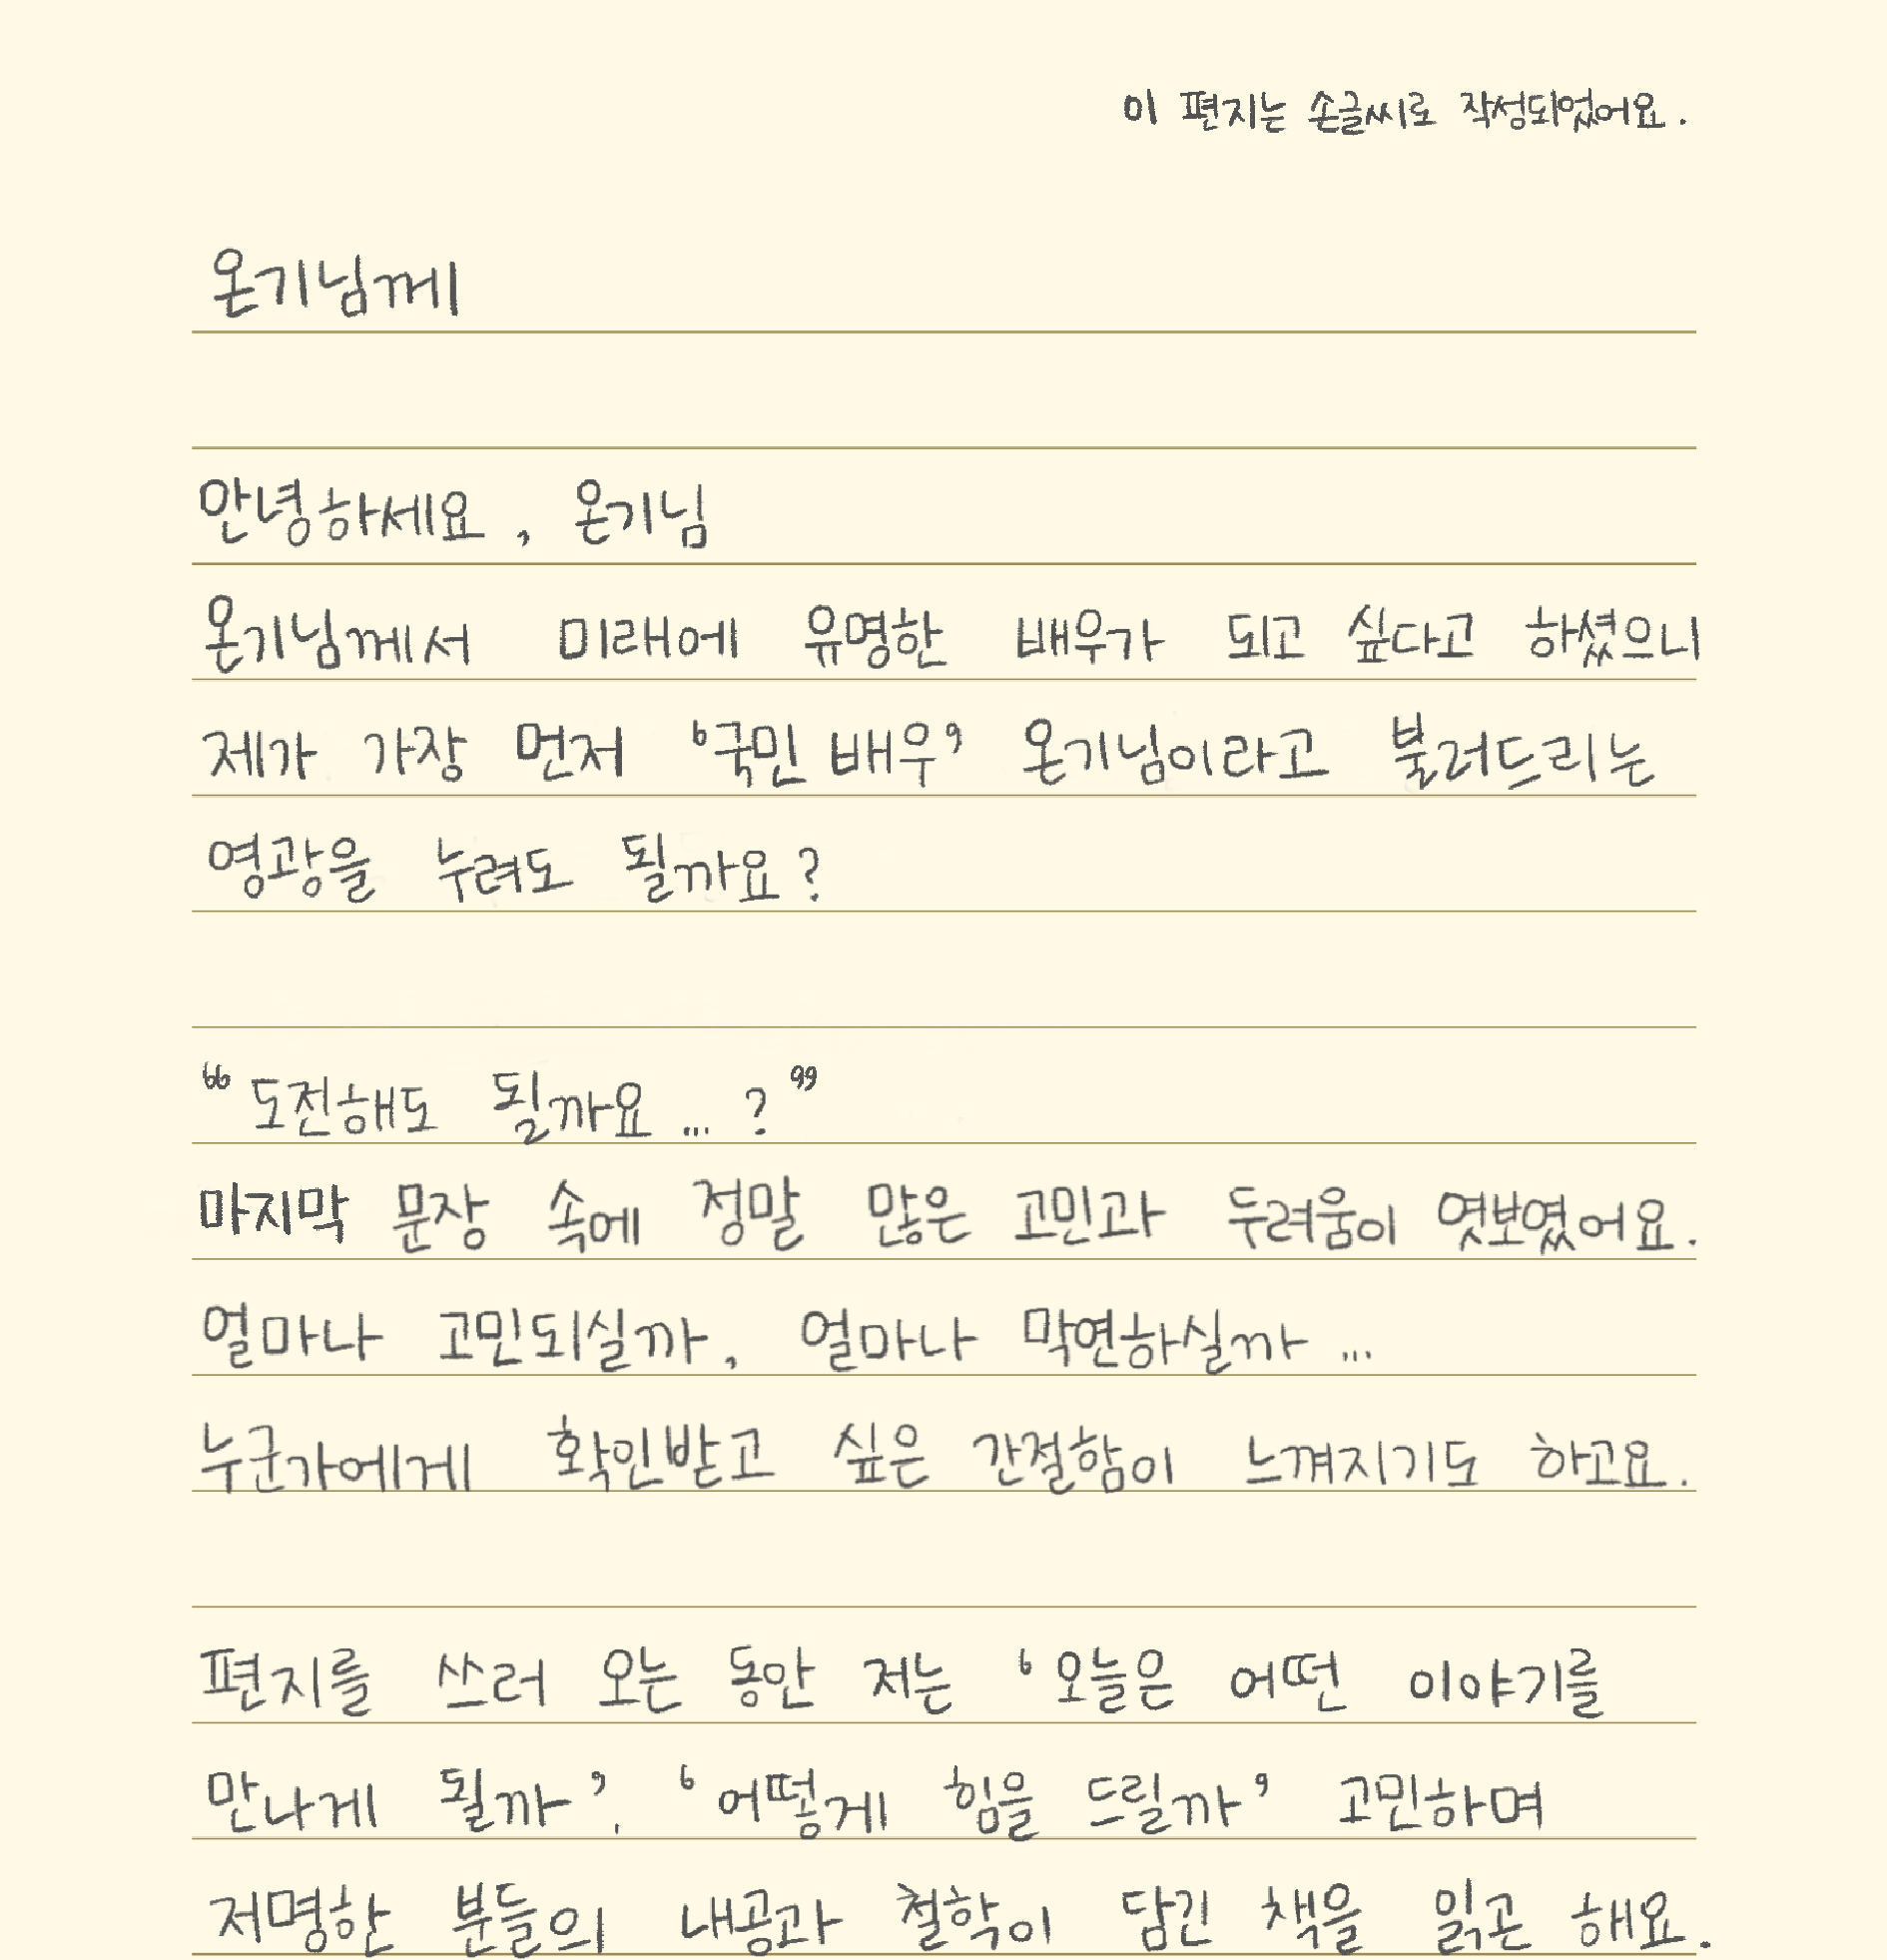 이 편지는 손글씨로 작성되었어요.
온기님께
안녕하세요, 온기님
온기님께서 미래에 유명한 배우가 되고 싶다고 하셨으니
제가 가장 먼저 '국민 배우' 온기님이라고 불러드리는
영광을 누려도 될까요?
"도전해도 될까요...?"
마지막 문장 속에 정말 많은 고민과 두려움이 엿보였어요.
얼마나 고민되실까, 얼마나 막연하실까...
누군가에게 확인받고 싶은 간절함이 느껴지기도 하고요.
편지를 쓰러 오는 동안 저는 '오늘은 어떤 이야기를
만나게 될까', '어떻게 힘을 드릴까' 고민하며
저명한 분들의 내공과 철학이 담긴 책을 읽곤 해요.